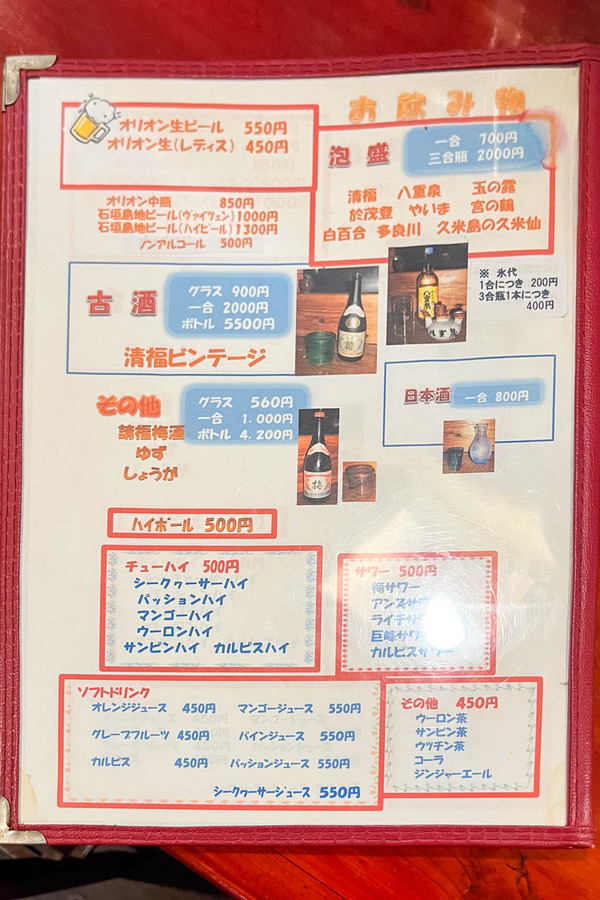 お飲み物
オリオン生ビール 550円
オリオン生(レディス) 450円
オリオン中瓶 850円
石垣島地ビール(ヴァイツェン)1000円
石垣島地ビール(ハイビール)1300円
ノンアルコール 500円
泡盛
一合 700円
三合瓶 2000円
清福 八重泉 玉の露
於茂登 やいま 宮の鶴
白百合 多良川 久米島の久米仙
※ 氷代
1合につき 200円
3合瓶1本につき
400円
古酒
グラス 900円
一合 2000円
ボトル 5500円
清福ビンテージ
その他
グラス 560円
一合 1.000円
ボトル 4.200円
請福梅酒
ゆず
しょうが
日本酒
一合 800円
ハイボール 500円
チューハイ 500円
シークヮーサーハイ
パッションハイ
マンゴーハイ
ウーロンハイ
サンピンハイ カルピスハイ
サワー 500円
梅サワー
アンズサワ
ライチサ
巨峰サワ
カルピスサワー
ソフトドリンク
オレンジジュース 450円 マンゴージュース 550円
グレープフルーツ 450円 パインジュース 550円
カルピス 450円 パッションジュース 550円
シークヮーサージュース 550円
その他 450円
ウーロン茶
サンピン茶
ウッチン茶
コーラ
ジンジャーエール